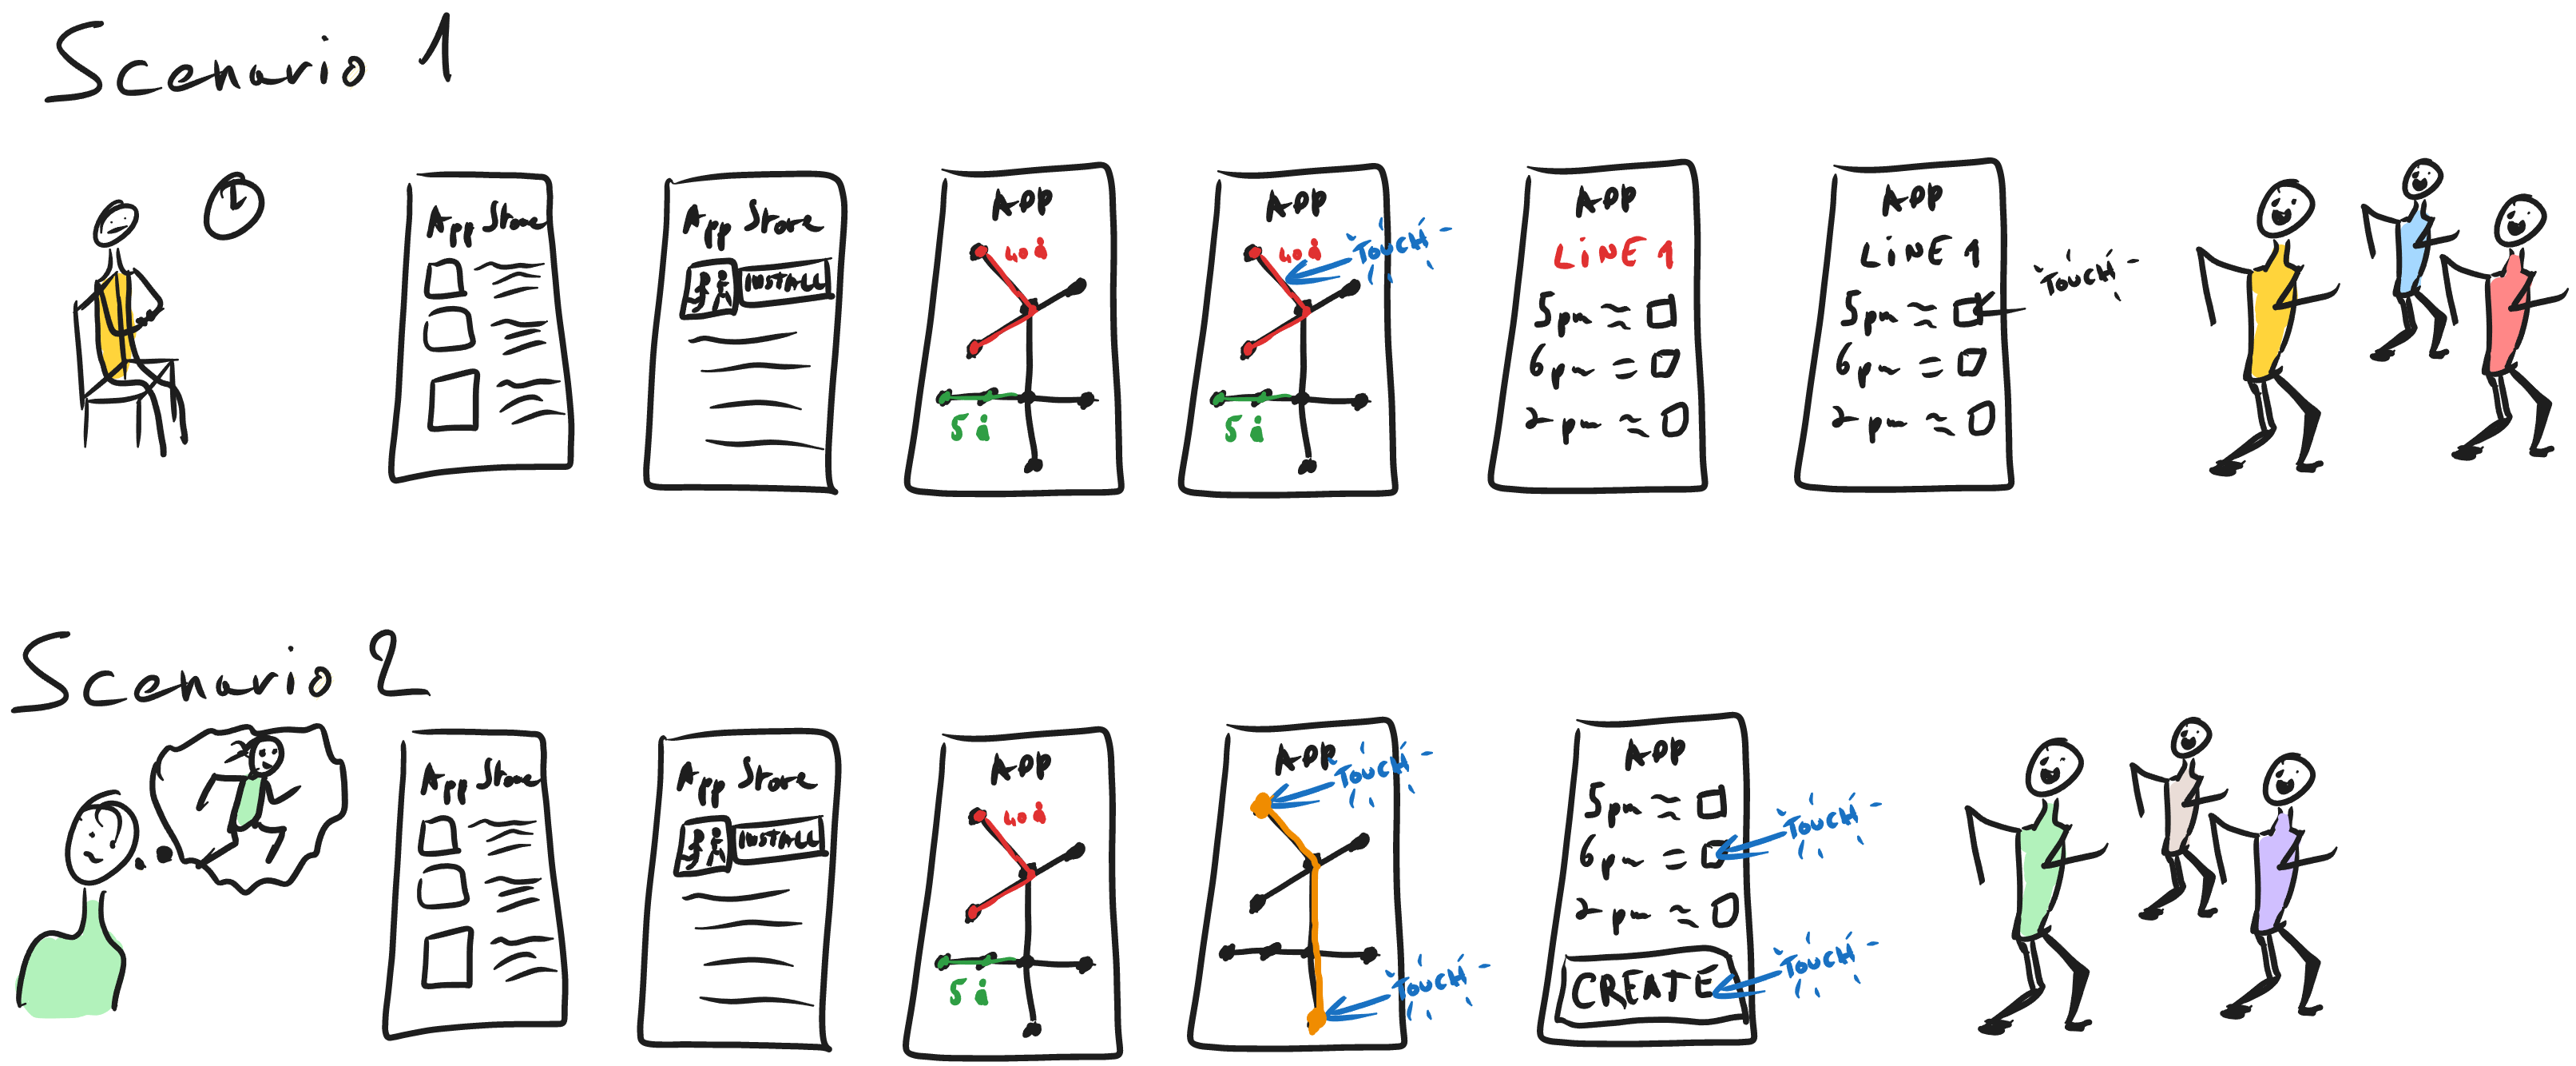 Scenario 1
App Store
App Store
INSTALL
APP
40
5
APP
40
TOUCH
5
APP
LINE 1
5pm ≈
6pm =
2pm ≈
APP
LINE 1
5pm ≈
6pm =
2pm ≈
TOUCH
Scenario 2
App Store
App Store
INSTALL
APP
40
5
APP
TOUCH
TOUCH
APP
5pm ≈
6pm =
2pm ≈
CREATE
TOUCH
TOUCH